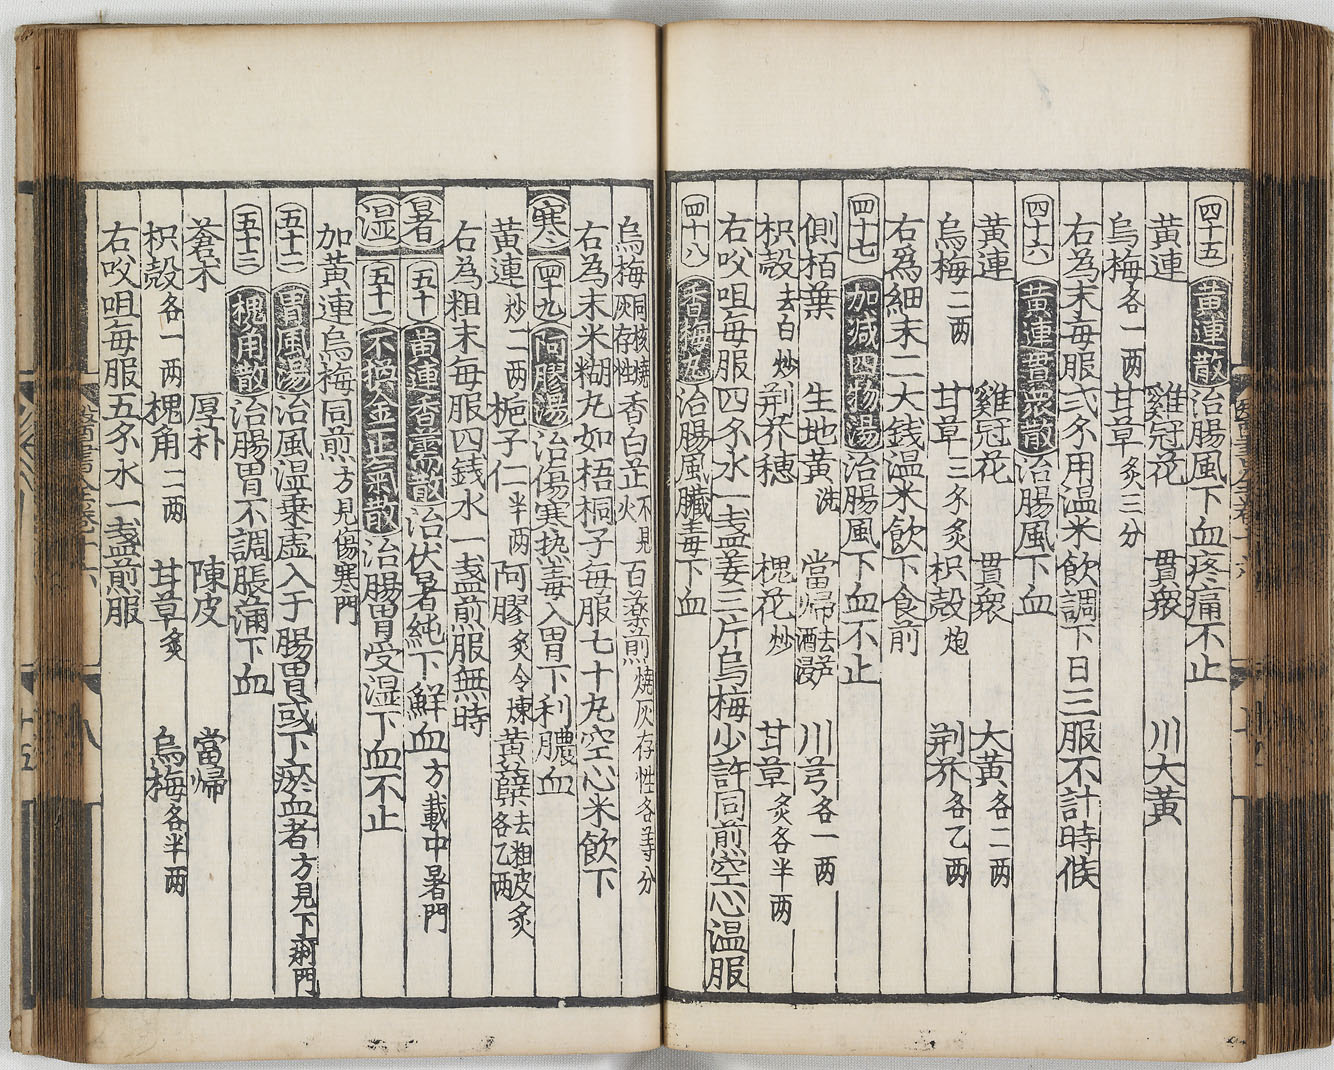 四十五 黄連散 治腸風下血疼痛不止
黄連 雞冠花 貫衆 川大黄
烏梅各一两 甘草炙三分
右為末每服弍ホ用温米飲調下日三服不計時候
四十六 黄連貫衆散 治腸風下血
黄連 雞冠花 貫衆 大黄各二两
烏梅二两 甘草三ホ炙 枳殻炮 荆芥各乙两
右爲細末二大銭温米飲下食前
四十七 加减四物湯 治腸風下血不止
側栢葉 生地黄洗 當帰去芦酒浸 川芎各一两
枳殻去白炒 荆芥穂 槐花炒 甘草炙各半两
右㕮咀每服四ホ水一盞姜三片烏梅少許同煎空心温服
四十八 香梅丸 治腸風臓毒下血
烏梅同核燒灰存性 香白芷不見火 百薬煎燒灰存性各等分
右為末米糊丸如梧桐子每服七十丸空心米飲下
寒 四十九 阿膠湯 治傷寒热毒入胃下利膿血
黄連炒二两 梔子仁半两 阿膠炙令煉 黄蘗去粗皮炙各乙两
右為粗末每服四銭水一盞煎服無時
暑 五十 黄連香薷散 治伏暑純下鮮血方載中暑門
湿 五十一 不換金正氣散 治腸胃受湿下血不止
加黄連烏梅同煎方見傷寒門
五十二 胃風湯 治風湿乗虚入于腸胃或下瘀血者方見下痢門
五十三 槐角散 治腸胃不調脹滿下血
蒼术 厚朴 陳皮 當帰
枳殻各一两 槐角二两 甘草炙 烏梅各半两
右㕮咀每服五ホ水一盞煎服